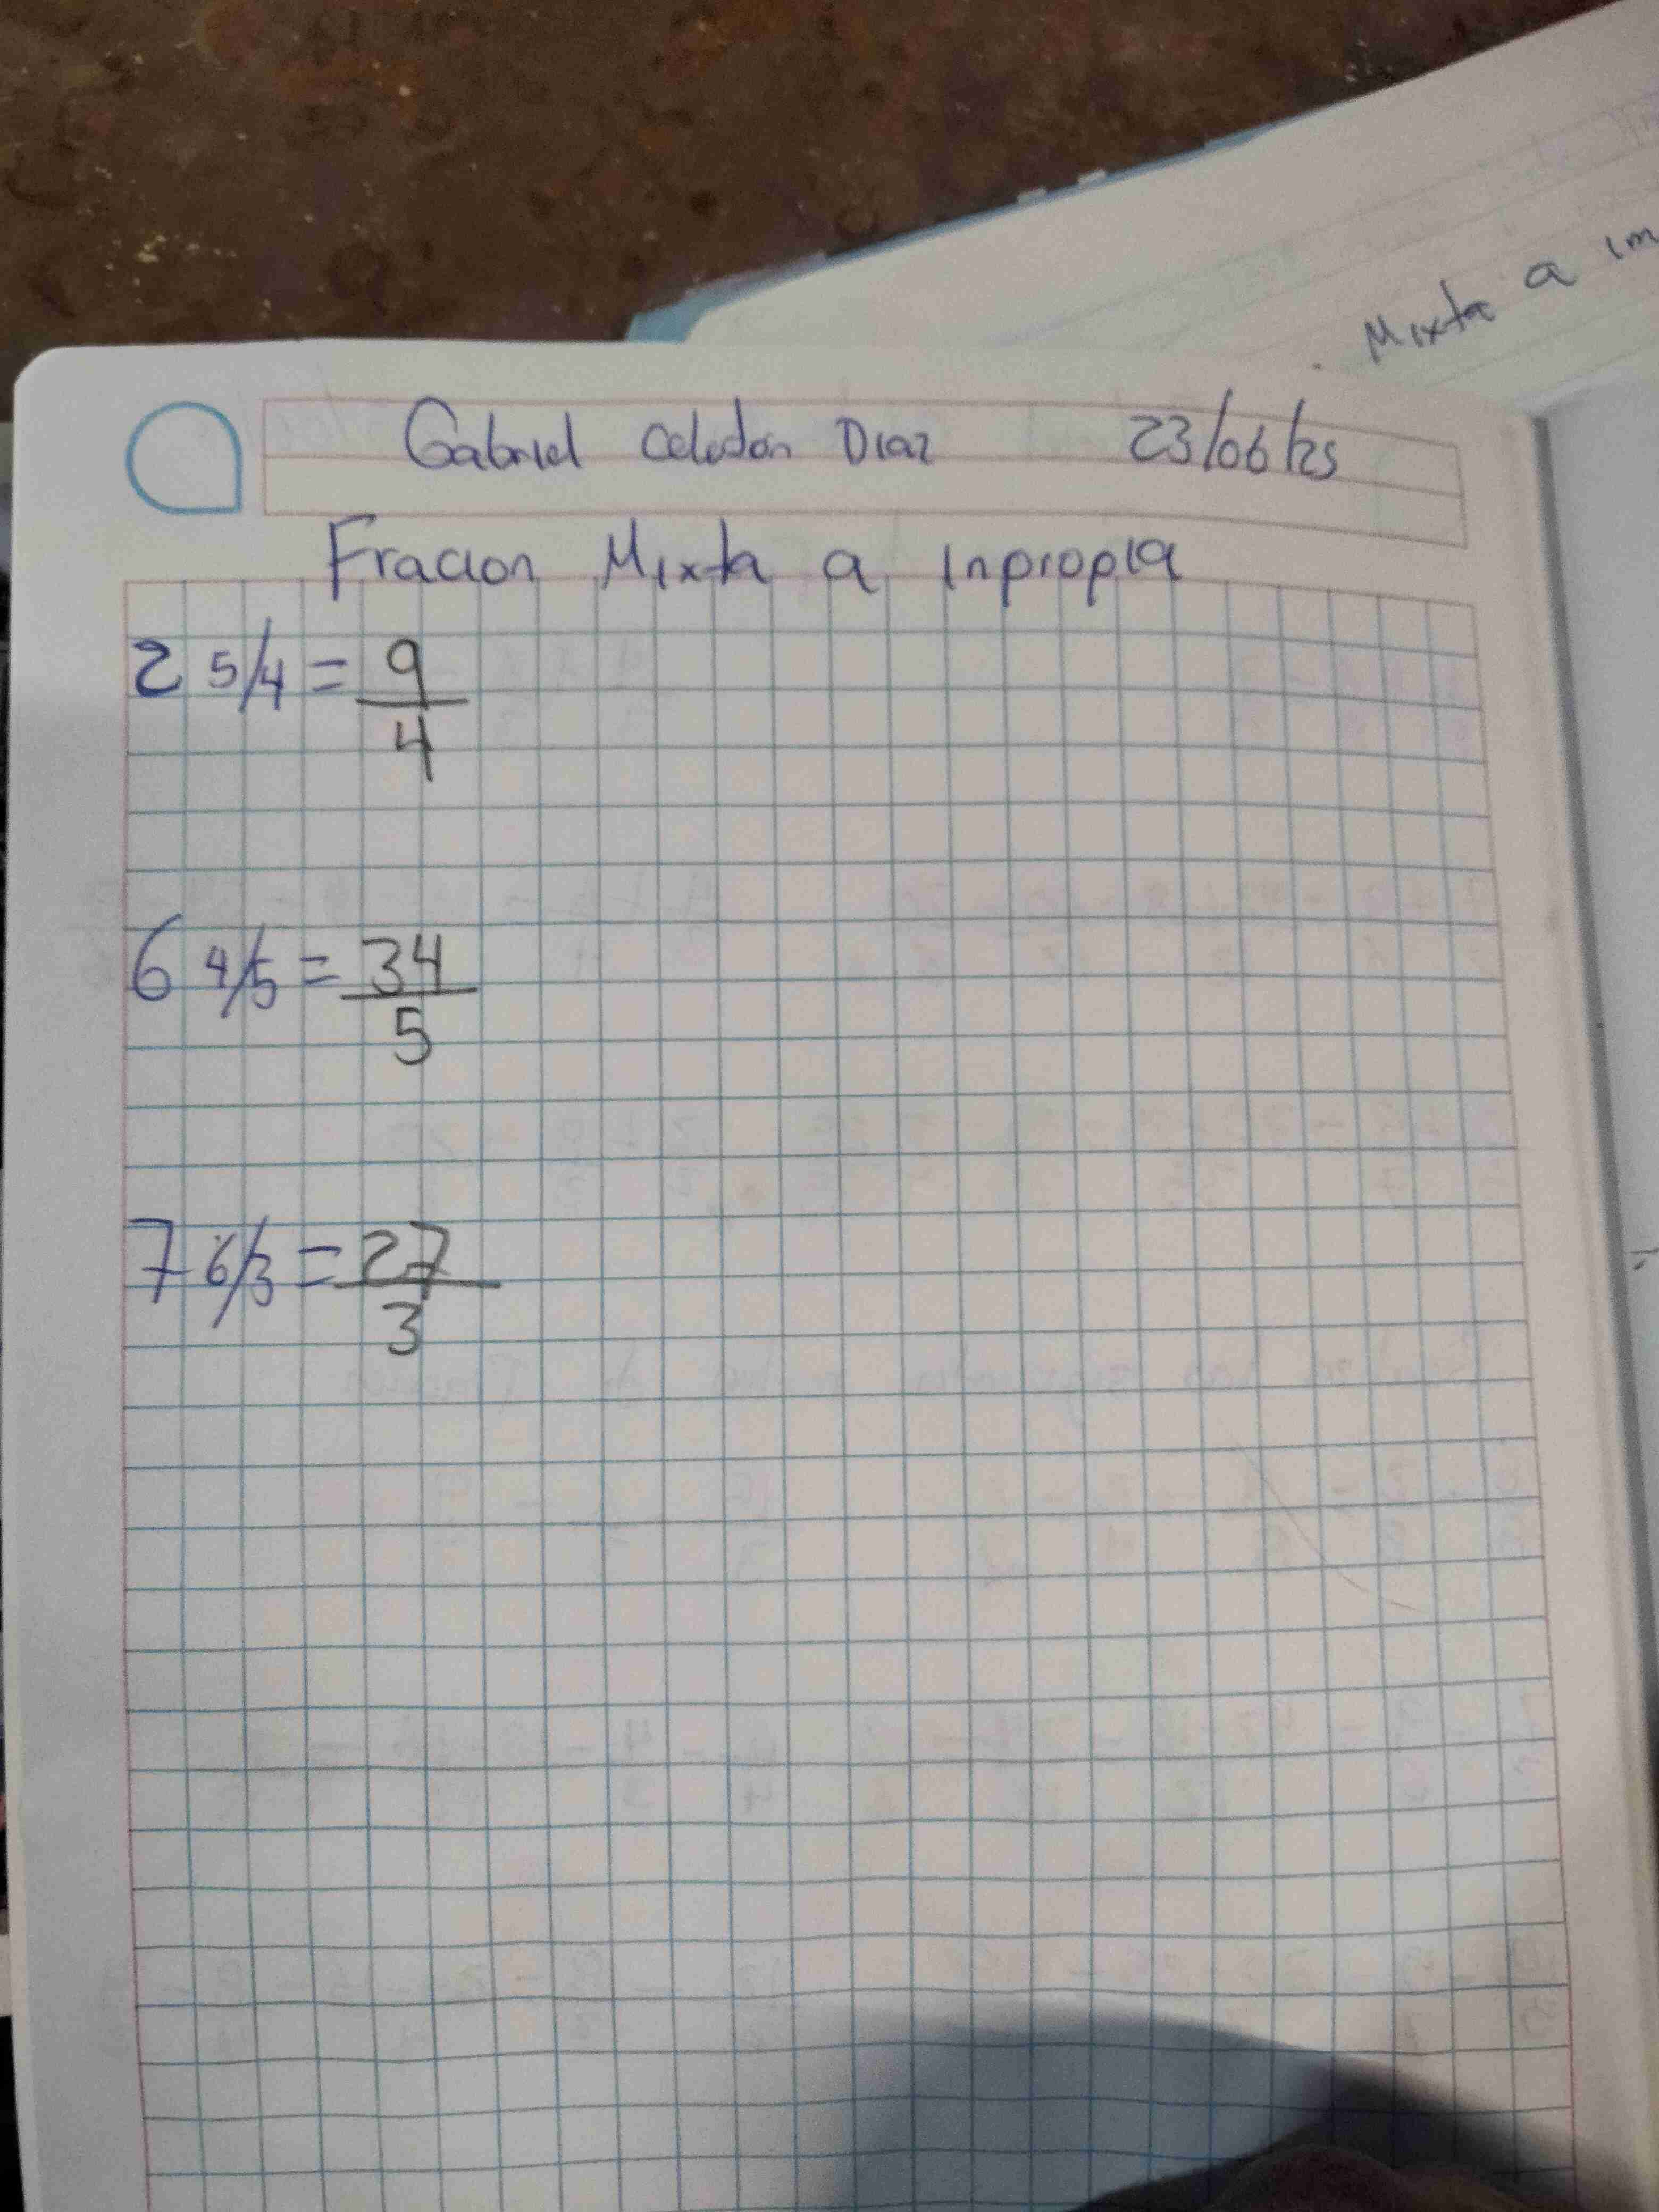 Mixta a im
Gabriel Celedon Diaz 23/06/25
Fracion Mixta a Inpropia
2 5/4 = 9/4
6 4/5 = 34/5
7 6/3 = 27/3